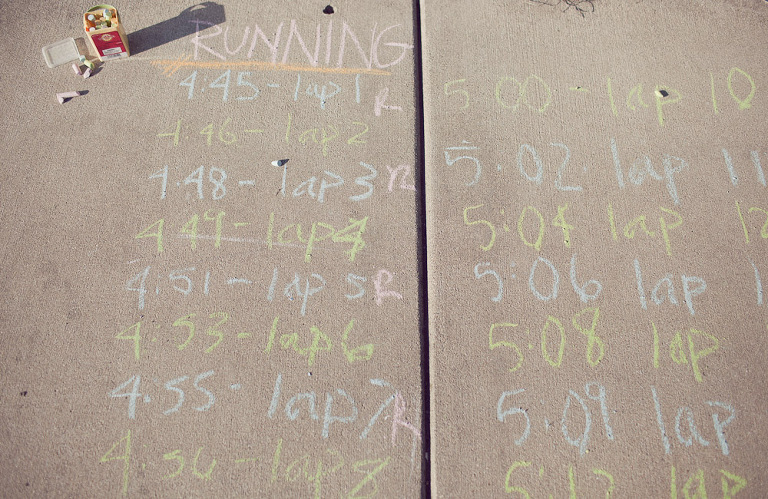 RUNNING
4:45 - lap 1 R
4:46 - lap 2
4:48 - lap 3 R
4:49 - lap 4
4:51 - lap 5 R
4:53 - lap 6
4:55 - lap 7 R
4:56 - lap 8
5:00 - lap 10
5:02 lap 11
5:04 lap 12
5:06 lap 1
5:08 lap
5:09 lap
5:12 lap